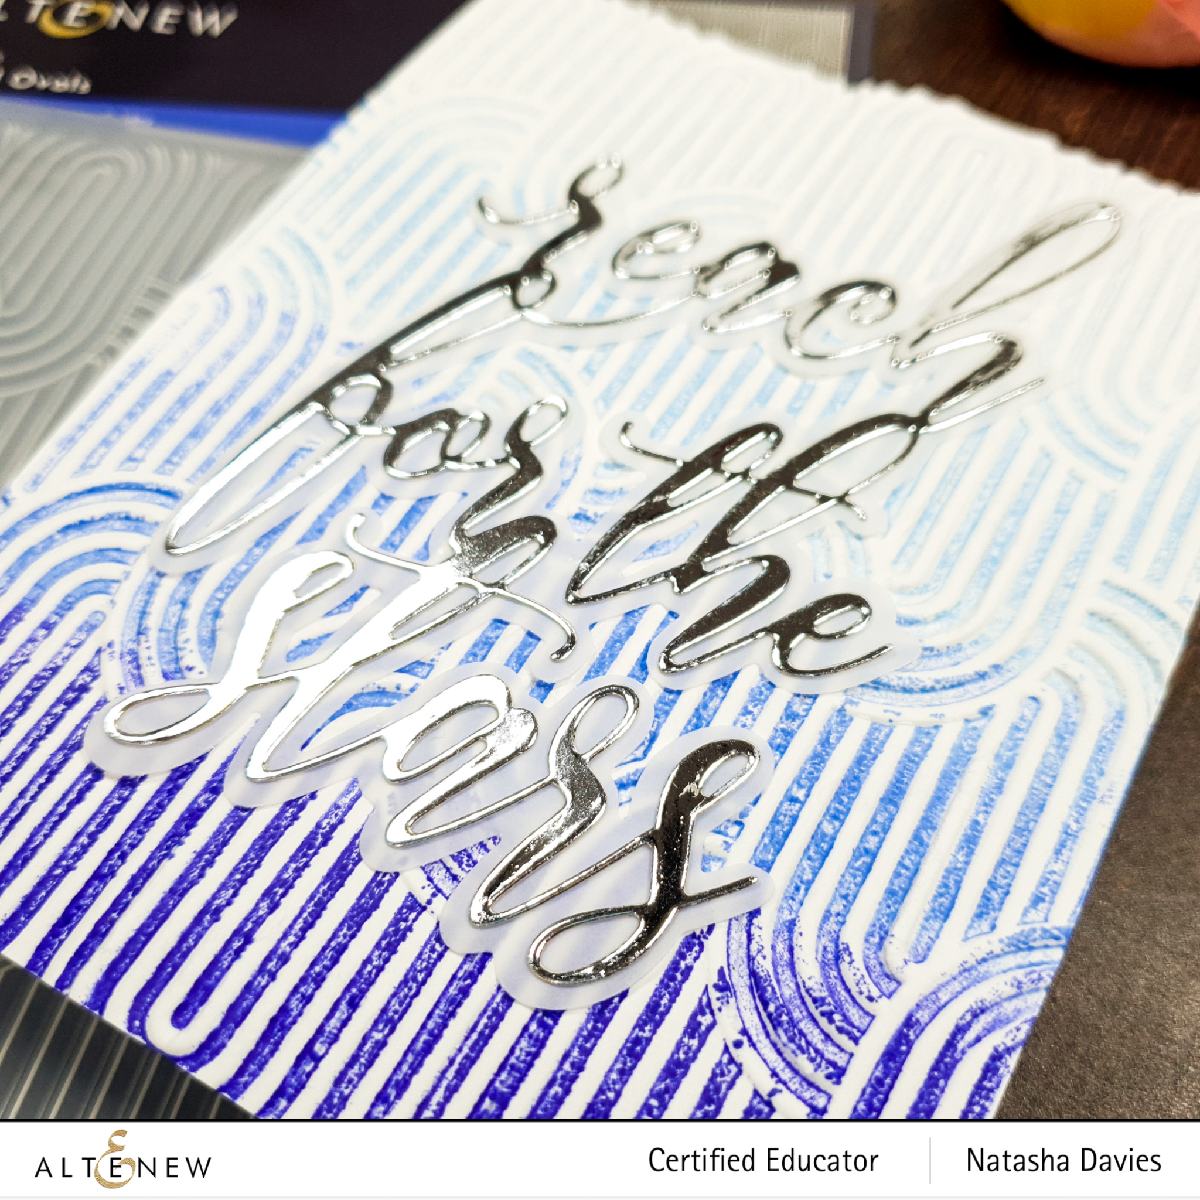 ALTENEW
Ovals
reach
for the
stars
ALTENEW
Certified Educator
Natasha Davies